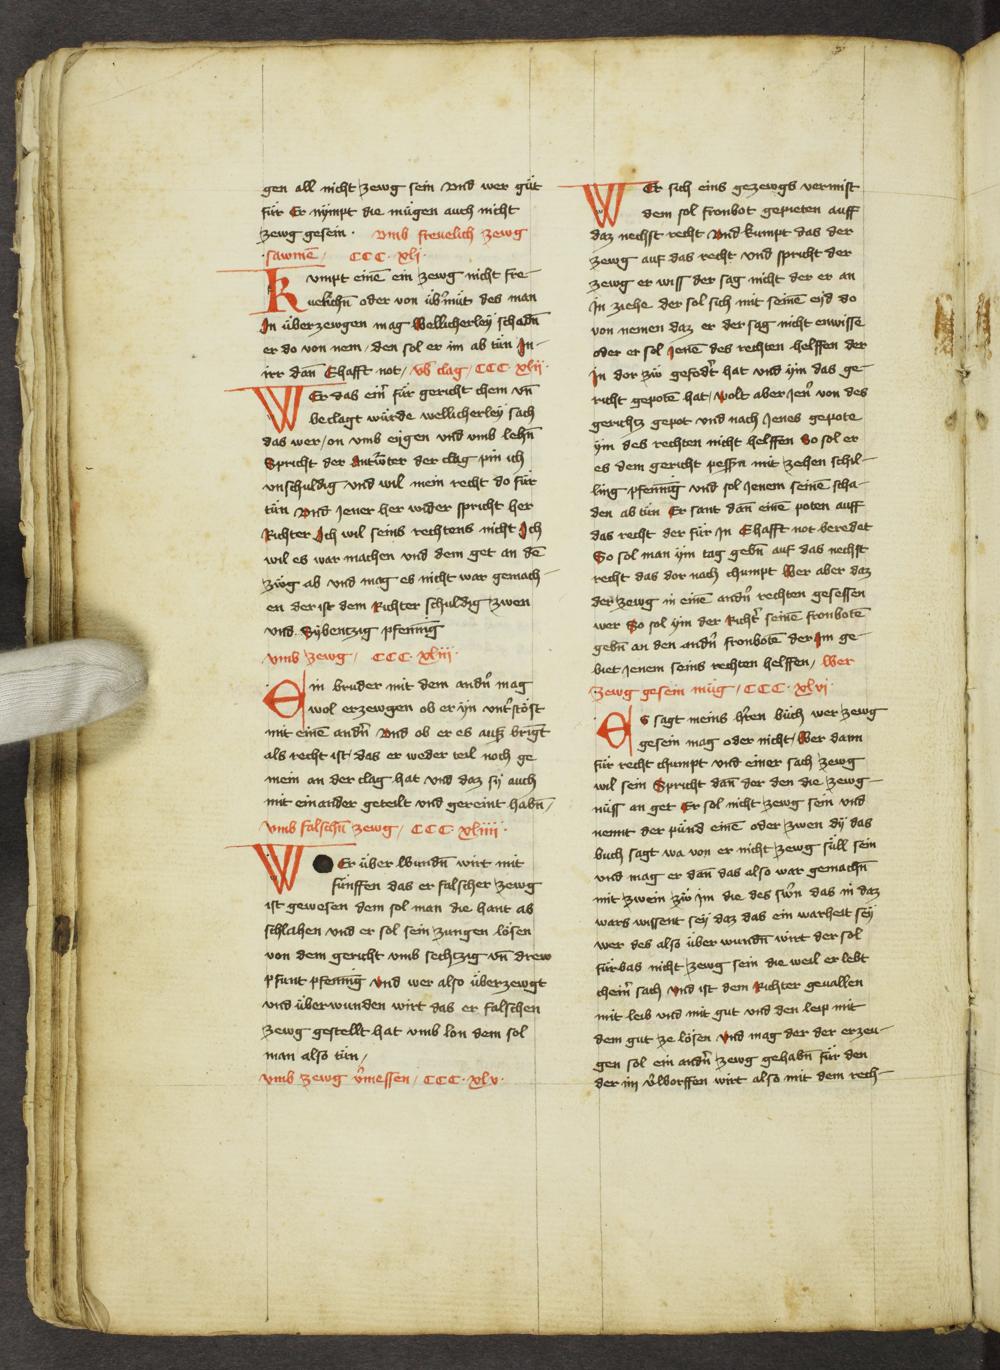 gen all nicht zewg sein vnd wer güt
für Er nÿmpt die mügen auch nicht
zewg gesein · vmb freuelich zewg
sawme᷑ / CCC · xlj ·
Kumpt eine᷑ ein zewg nicht fre-
uelich᷑n oder von üb᷑mut des man
In überzewgen mag Wellicherleÿ schad᷑n
er do von nem / den sol er im ab tün In-
irr dan᷑ Ehafft not / vb᷑ clag / CCC xlij ·
WEr das ein᷑ für gericht chem vn᷑
beclagt würde wellicherleÿ sach
das wer / on vmb eÿgen vnd vmb lehn᷑
Spricht der Antw᷑ter der clag pin ich
vnschuldig vnd wil mein recht do für
tün Vnd Jener her wider spricht her
Richter Ich wil seins rechtens nicht Ich
wil es war machen vnd dem get an de᷑
zwg ab vnd mag es nicht war gemach-
en der ist dem Richter schuldig zwen
vnd Sÿbentzig pfen᷑nig
vmb zewg / CCC · xliij ·
Ein bruder mit dem andn᷑ mag
wol erzewgen ob er ÿn vnt᷑stöst
mit eine᷑ andn᷑ Vnd ob er es auß bringt
als recht ist · das er weder teil noch ge
mein an der clag hat vnd daz sÿ auch
mit ein ander geteilt vnd gereint habn᷑ /
vmb falschn᷑ zewg / CCC xliiij ·
WEr über Wundn᷑ wirt mit
fünffen das er falscher zewg
ist gewesen dem sol man die hant ab
schlahen vnd er sol sein zungen lösen
von dem gericht vmb sechtzig vn᷑ drew
pfunt pfen᷑nig Vnd wer also überzewgt
vnd überwunden wirt das er falschen
zewg gestellt hat vmb lon dem sol
man also tün /
vmb zewg v᷑messen / CCC · xlv ·
WEr sich eins gezewgs vermist
dem sol fronbot gepieten auff
daz nechst recht Vnd kumpt das der
zewg auf das recht vnd spricht der
zewg er wiss der sag nicht der er an
In ziehe der sol sich mit seine᷑ eÿd do
von nemen daz er der sag nicht enwisse
oder er sol Jene᷑ des rechten helffen der
In dor zü gefodt᷑ hat vnd ÿm das ge-
richt gepote᷑ hat / wolt aber Jen᷑ von des
gerichtz gepot vnd nach Jenes gepote
ÿm des rechten nicht helffen So sol er
es dem gericht pessn᷑ mit zehen schil-
ling pfen᷑nig vnd sol Jenem seine᷑ scha-
den ab tün Er sant dan᷑ eine᷑ poten auff
das recht der für In Ehafft not beredet
So sol man ÿm tag gebn᷑ auf das nechst
recht das dor nach chumpt Wer aber daz
der zewg in eine᷑ andn᷑ rechten gesessen
wer So sol ÿm der Richt᷑ seine᷑ fronbote᷑
gebn᷑ an den andn᷑ fronbote᷑ der Im ge-
biet Jenem seins rechten helffen / Wer
zewg gesein müg / CCC · xlvj
ES sagt meins h᷑ren büch wer zewg
gesein mag oder nicht / Wer dann
für recht chumpt vnd einer sach zewg
wil sein Spricht dan᷑ der den die zewg-
nüss an get Er sol nicht zewg sein vnd
nennt der pünd eine᷑ oder zwen dÿ das
buch sagt wa von er nicht zewg süll sein
vnd mag er dan᷑ das also war gemachn᷑
mit zwein zü Im die des sw᷑n das in daz
wars wissent seÿ daz das ein warheit seÿ
wer des also über wundn᷑ wirt der sol
fürbas nicht zewg sein die weil er lebt
chein᷑ sach Vnd ist dem Richter geuallen
mit leib vnd mit gut vnd den leip mit
dem gut ze lösen Vnd mag der der erzeu-
gen sol ein andn᷑ zewg gehabn᷑ für den
der im v᷑worffen wirt also mit dem rech-